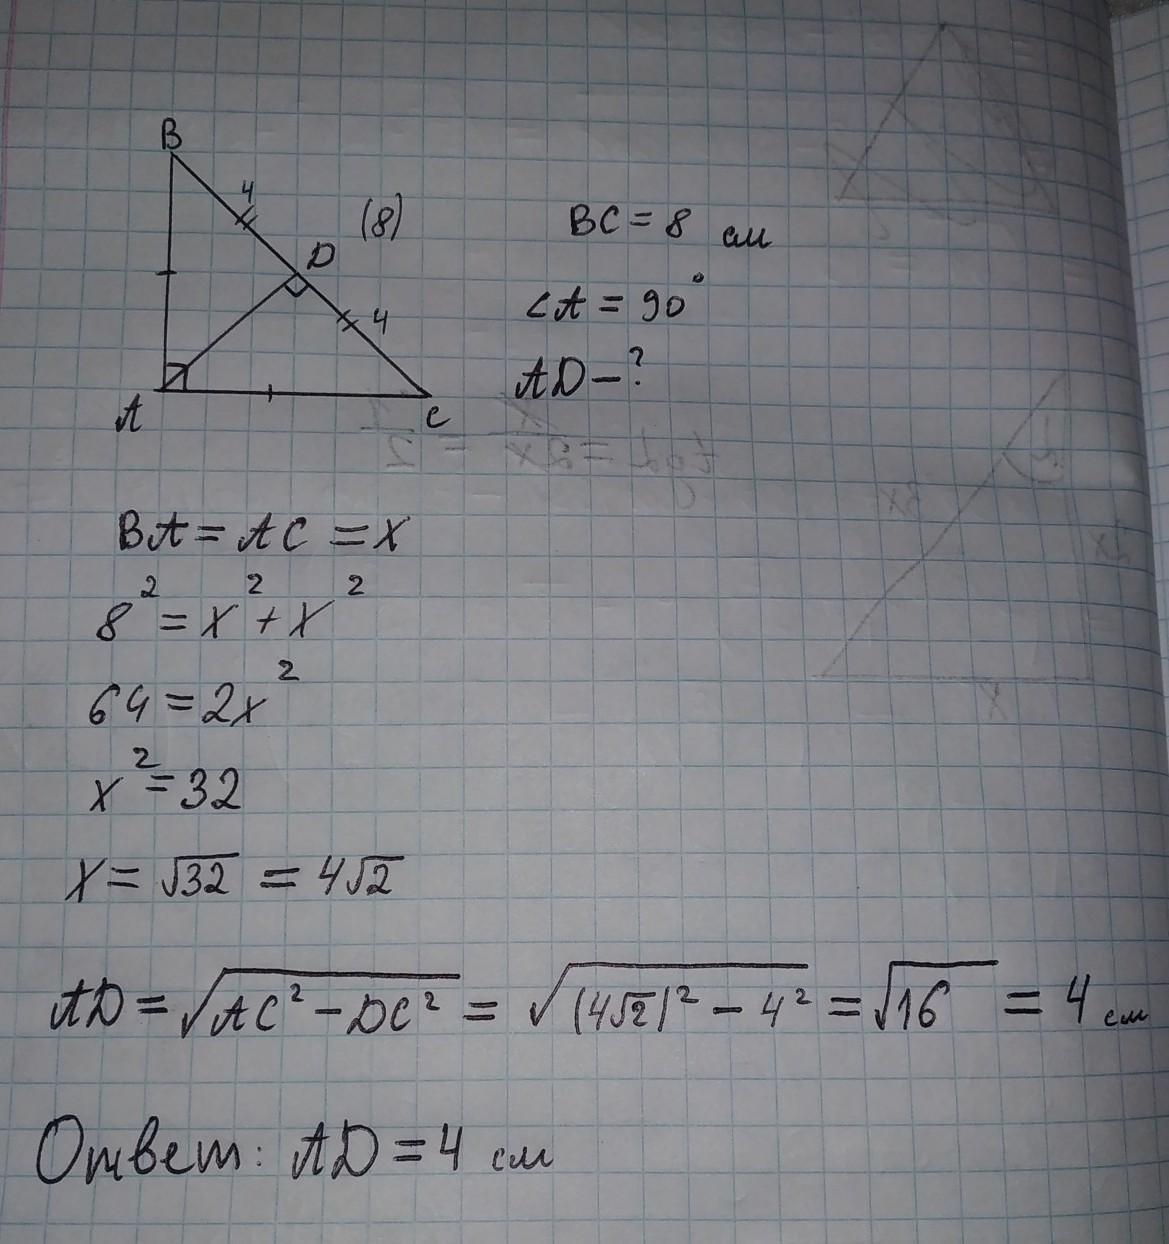 B
4
(8)
D
4
A
C
BC = 8 см
∠A = 90°
AD – ?
BA = AC = x
8² = x² + x²
64 = 2x²
x² = 32
x = √32 = 4√2
AD = √(AC² – DC²) = √((4√2)² – 4²) = √16 = 4 см
Ответ: AD = 4 см